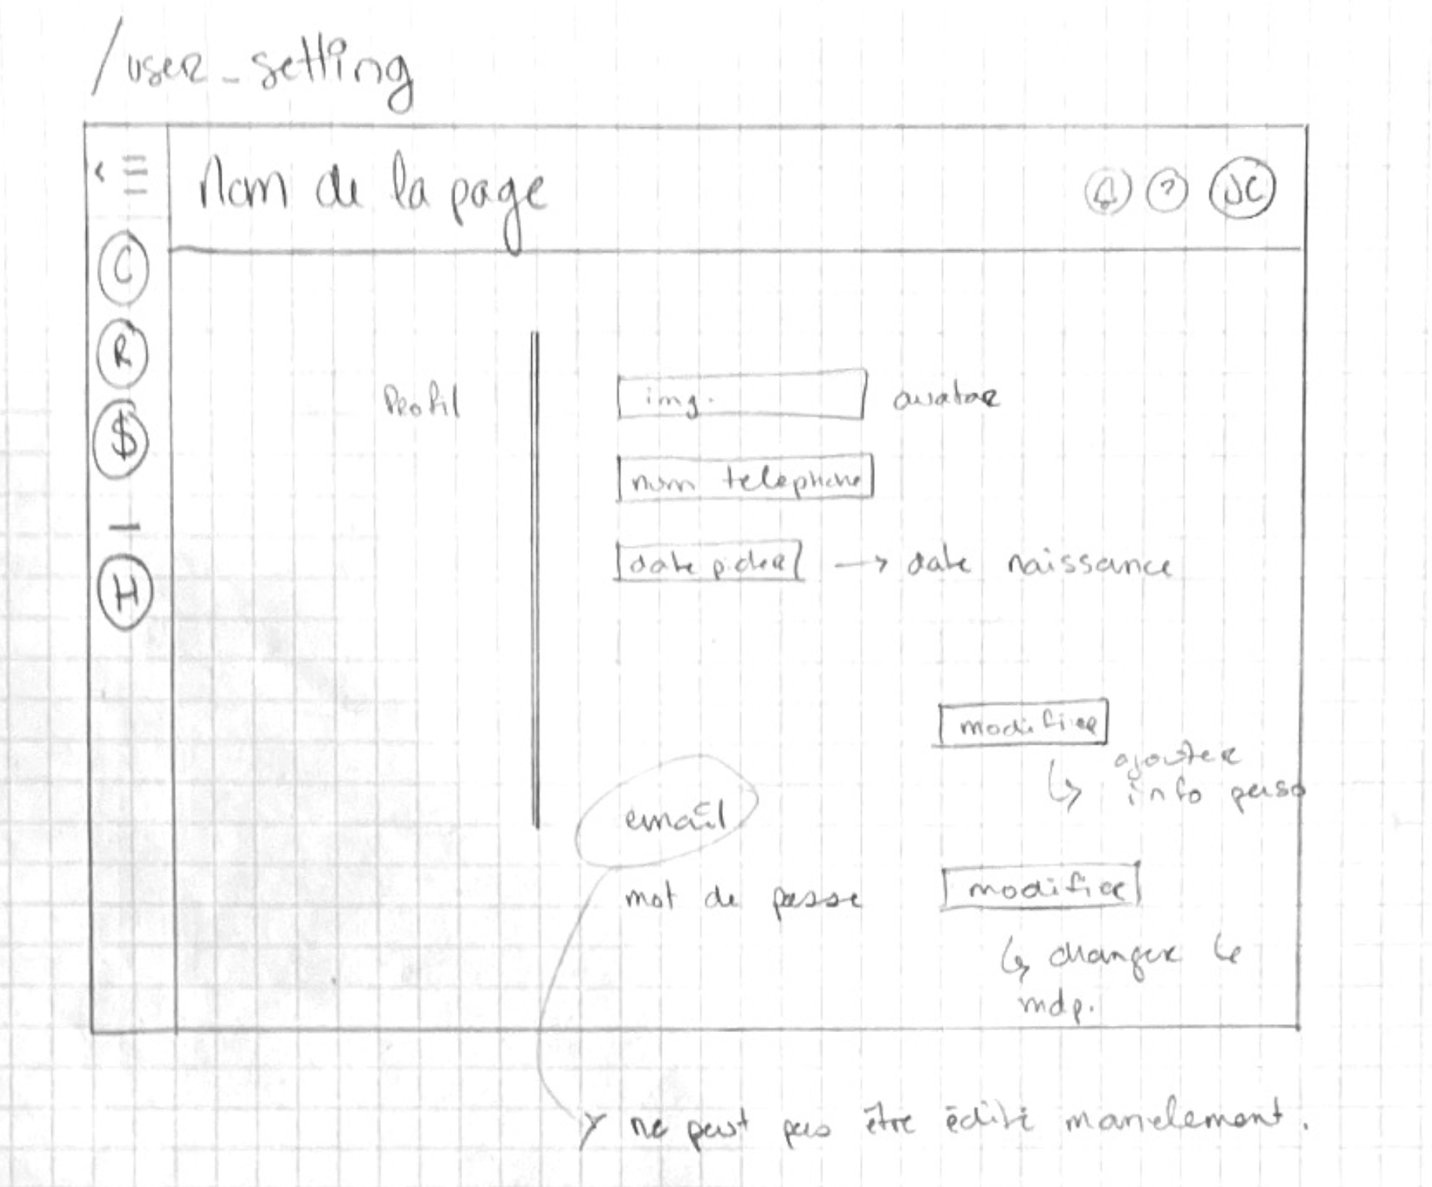 /user_setting
Nom de la page
? JC
C
R
$
H
Profil
img. avatar
num telephone
date picker → date naissance
modifier
↳ ajouter
info perso
email
mot de passe modifier
↳ changer le
mdp.
ne peut pas être édité manuelement.